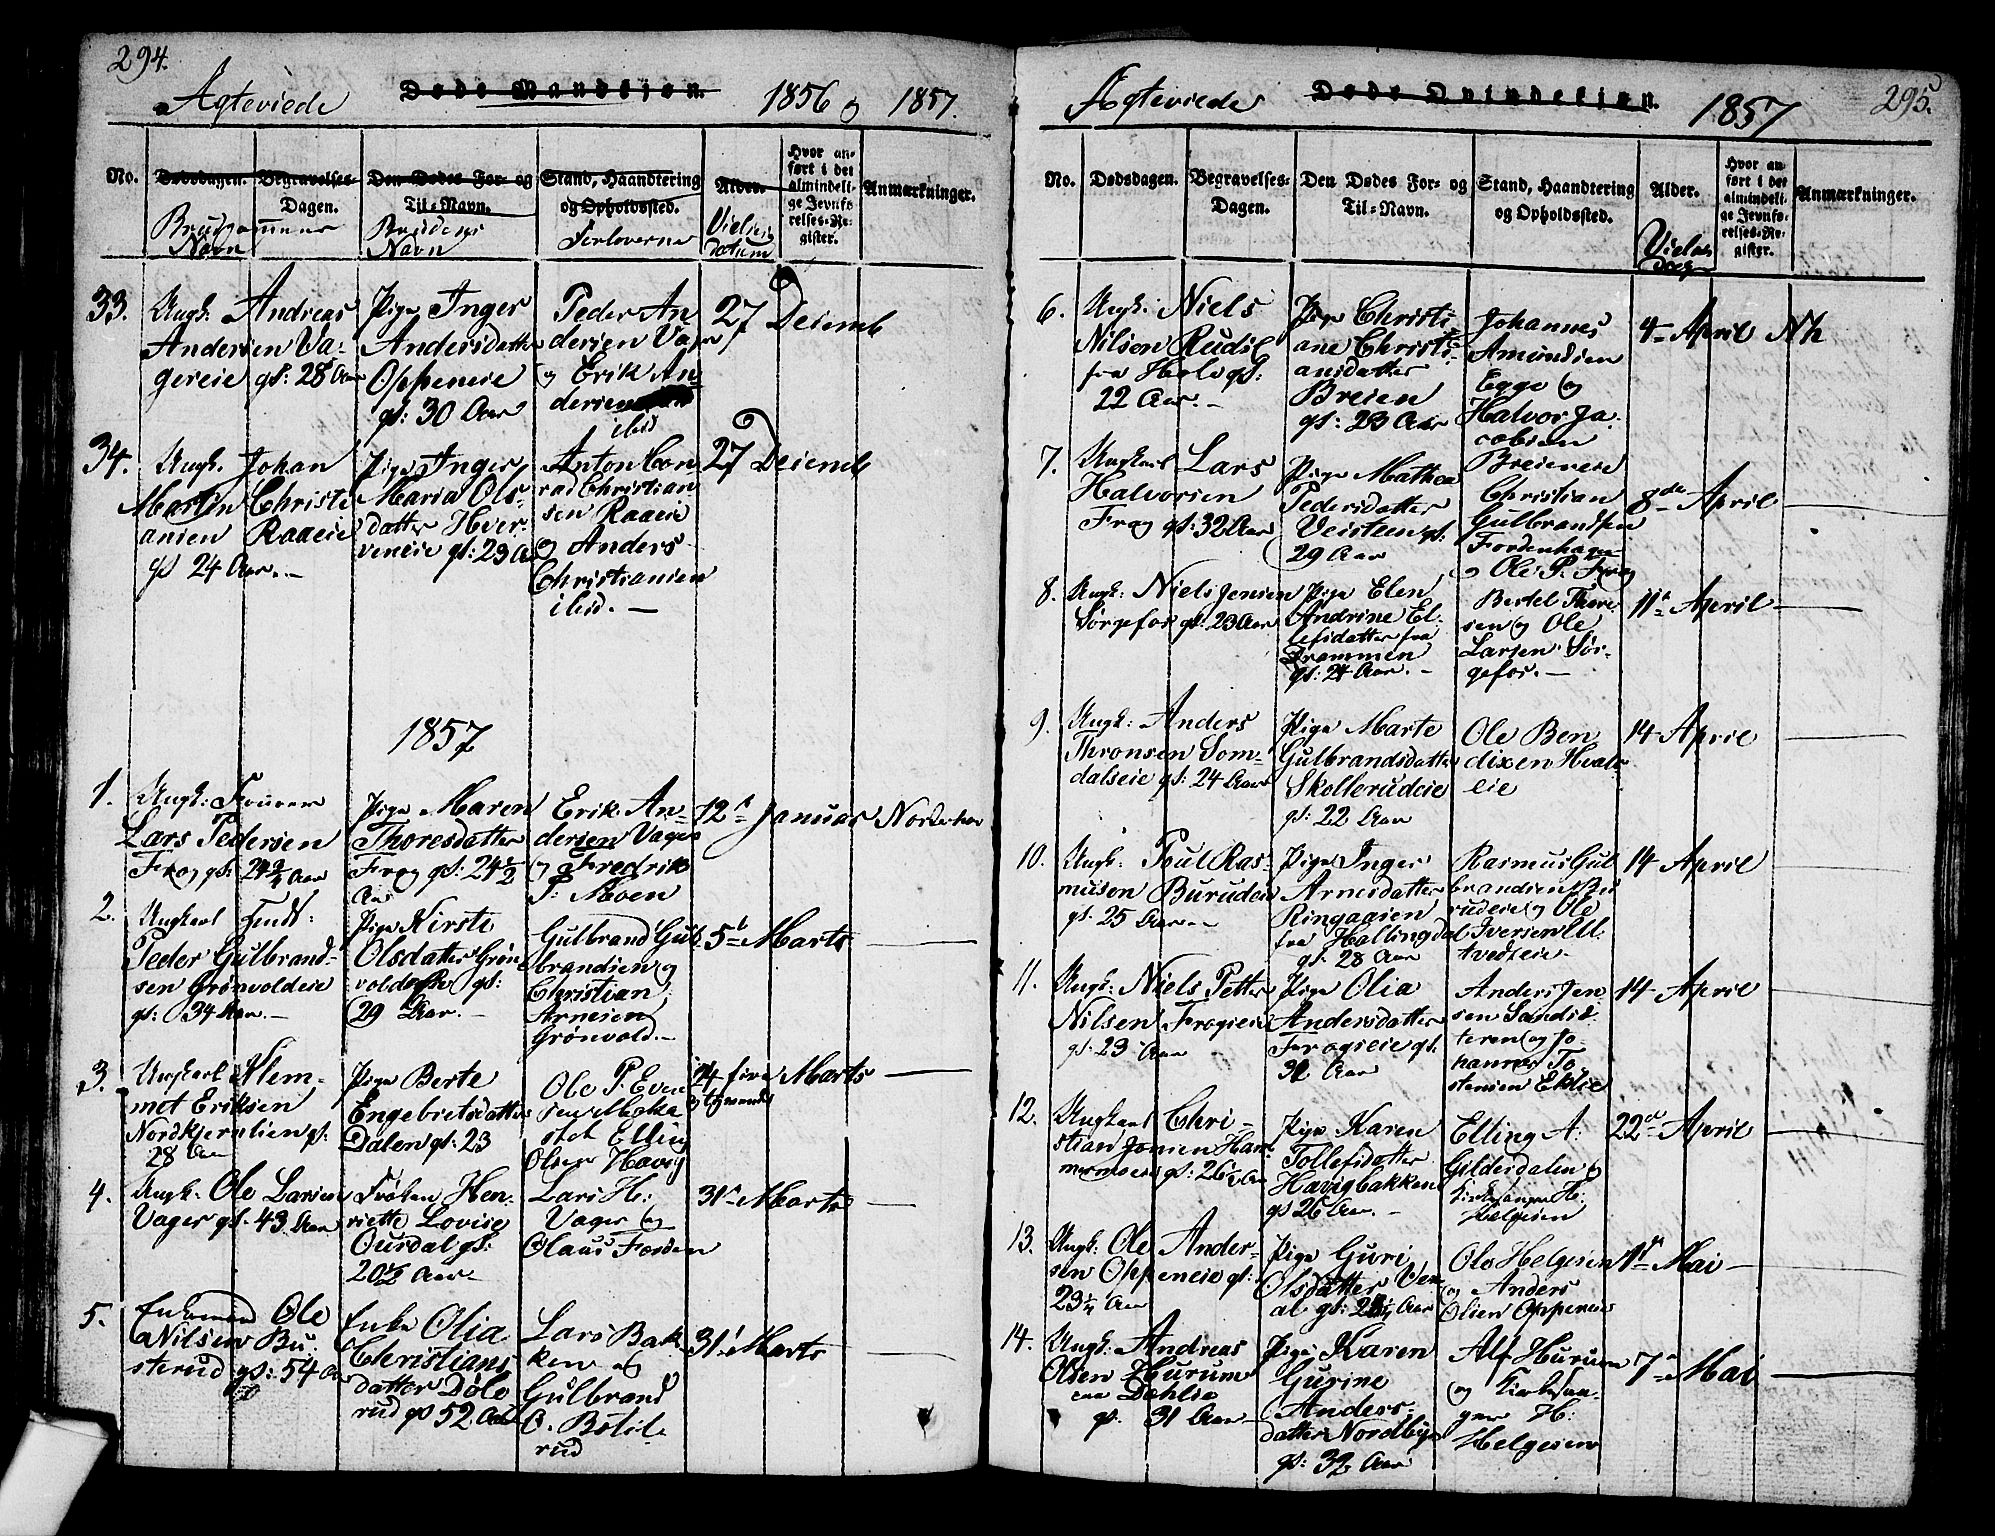 294.
Ægteviede
Døde Mandkjøn.
1856 og 1857.
No.
Dødsdagen.
Begravelses-
Dagen.
Den Dødes For- og
Til-Navn.
Stand, Haandtering
og Opholdssted.
Alder.
Hvor an-
ført i det
almindeli-
ge Jevnfø-
relses-Re-
gister.
Anmærkninger.
Brudgommens
Navn
Brudens
Navn
Forloverne
Vielses
datum
33.
Ungk: Andreas
Andersen Va-
gereie gl: 28 Aar
Pige Inger
Andersdatter
Oppeneie
gl: 30 Aar
Peder An
dersen Vager
og Erik An
dersen
ibid
27 Decemb
34.
Ungk. Johan
Martin Christi
ansen Raaeie
gl 24 Aar. -
Pige Inger
Maria Ols-
datter Hver-
veneie gl: 23 Aar
Anton Con
rad Christian
sen Raaeie
og Anders
Christiansen
ibid. -
27 Decemb
1857
1.
Ungk:
Lars Pedersen
Frog gl: 24 3/4 Aar
Pige Maren
Thoresdatter
Frog gl: 24 1/2
Aar
Erik An-
dersen Vager
og Fredrik
P: Moen
12t Januar
Norderhov
2.
Ungkarl
Peder Gulbrand-
sen Grønvoldeie
gl: 34 Aar. -
Pige Kirsti
Olsdatter Grøn
voldeie gl:
29 Aar. -
Gulbrand Gul
brandsen og
Christian
Arnesen
Grønvold. -
5t Marts
3.
Ungkarl Klem-
met Eriksen
Nordkjernlien gl:
28 Aar
Pige Berte
Engebretsdatter
Dalen gl: 23
Ole P. Even
sen Moka
stet Elling
Olsen Havig
24 fire Marts
og tyvende
4.
Ungk: Ole Larsen
Vager gl. 43 Aar
Frøken Hen-
riette Lovise
Ousdal gl:
20 1/2 Aar -
Lars He:
Vager og
Olaus Forden
31t Marts
5.
Enkemand Ole
Nilsen Bu-
sterud gl: 54 Aar
Enke Olia
Christians
datter Døle
rud gl 52 Aar
Lars Bak-
ken og
Gulbrand
O. Bølil-
rud
31t Marts
295.
Ægteviede
Døde Qvindekjøn.
1857
No.
Dødsdagen.
Begravelses-
Dagen.
Den Dødes For- og
Til-Navn.
Stand, Haandtering
og Opholdssted.
Alder.
Hvor an-
ført i det
almindeli-
ge Jevnfø-
relses-Re-
gister.
Anmærkninger.
Vielses
dag
6.
Ungk: Niels
Nilsen Rudsl
fra Hole gl:
22 Aar. -
Pige Christi-
ane Christi-
ansdatter
Breien
gl: 23 Aar
Johannes
Amundsen
Egge og
Halvor Ja-
cobsen
Breieneie
4 April
Nh
7.
Ungkarl Lars
Halvorsen
Frog gl: 32 Aar
Pige Mathea
Pedersdatter
Veisteen gl:
29 Aar
Christian
Gulbrandsen
Fordenhagen
og Ole P. Frog
8de April
8.
Ungk: Niels Jensen
Sørgefos gl: 23 Aar
Pige Elen
Andrine El-
lefsdatter fra
Drammen
gl: 24 Aar. -
Bertel Thore
sen og Ole
Larsen Sør-
gefos. -
11t April
9.
Ungk: Anders
Thronsen Som-
dalseie gl: 24 Aar
Pige Marte
Gulbrandsdatter
Skollerudeie
gl: 22 Aar
Ole Ben
dixen Hvals
eie
14 April
10.
Ungk: Poul Ras-
musen Burudeie
gl: 25 Aar -
Pige Inger
Arnesdatter
Ringaasen
fra Hallingdal
gl: 28 Aar
Rasmus Gul
brandsen Bu
rudeie og Ole
Iversen Ell-
tvedteie -
14 April
11.
Ungk: Niels Petter
Nilsen Frogeie
gl: 23 Aar
Pige Olia
Andersdatter
Frogseie gl.
31 Aar
Anders Jen
sen Sandsæ-
teren og Jo-
hannes To-
stensen Eklie
14 April
12.
Ungkarl Chri-
stian Jonsen Ham
mermoen gl: 26 1/2 Aar
Pige Karen
Tollefsdatter
Havigbakken
gl 26 Aar. -
Elling A:
Gildesdalen og
Kirkesanger H:
Helgesen
22de April
13.
Ungk: Ole Ander-
sen Oppeneie gl:
23 1/4 Aar
Pige Guri
Olsdatter Ven
al gl: 21 1/4 Aar
Ole Helgesen
og Anders
Olsen Oppeneie
1ste Mai
14.
Ungk: Andreas
Olsen Hurum
Dæhlie
gl: 31 Aar
Pige Karen
Gurine
Anders-
datter Nordbye
gl: 32 Aar
Alf Hurum
og Kirkesan-
ger H:
Helgesen
7de Mai